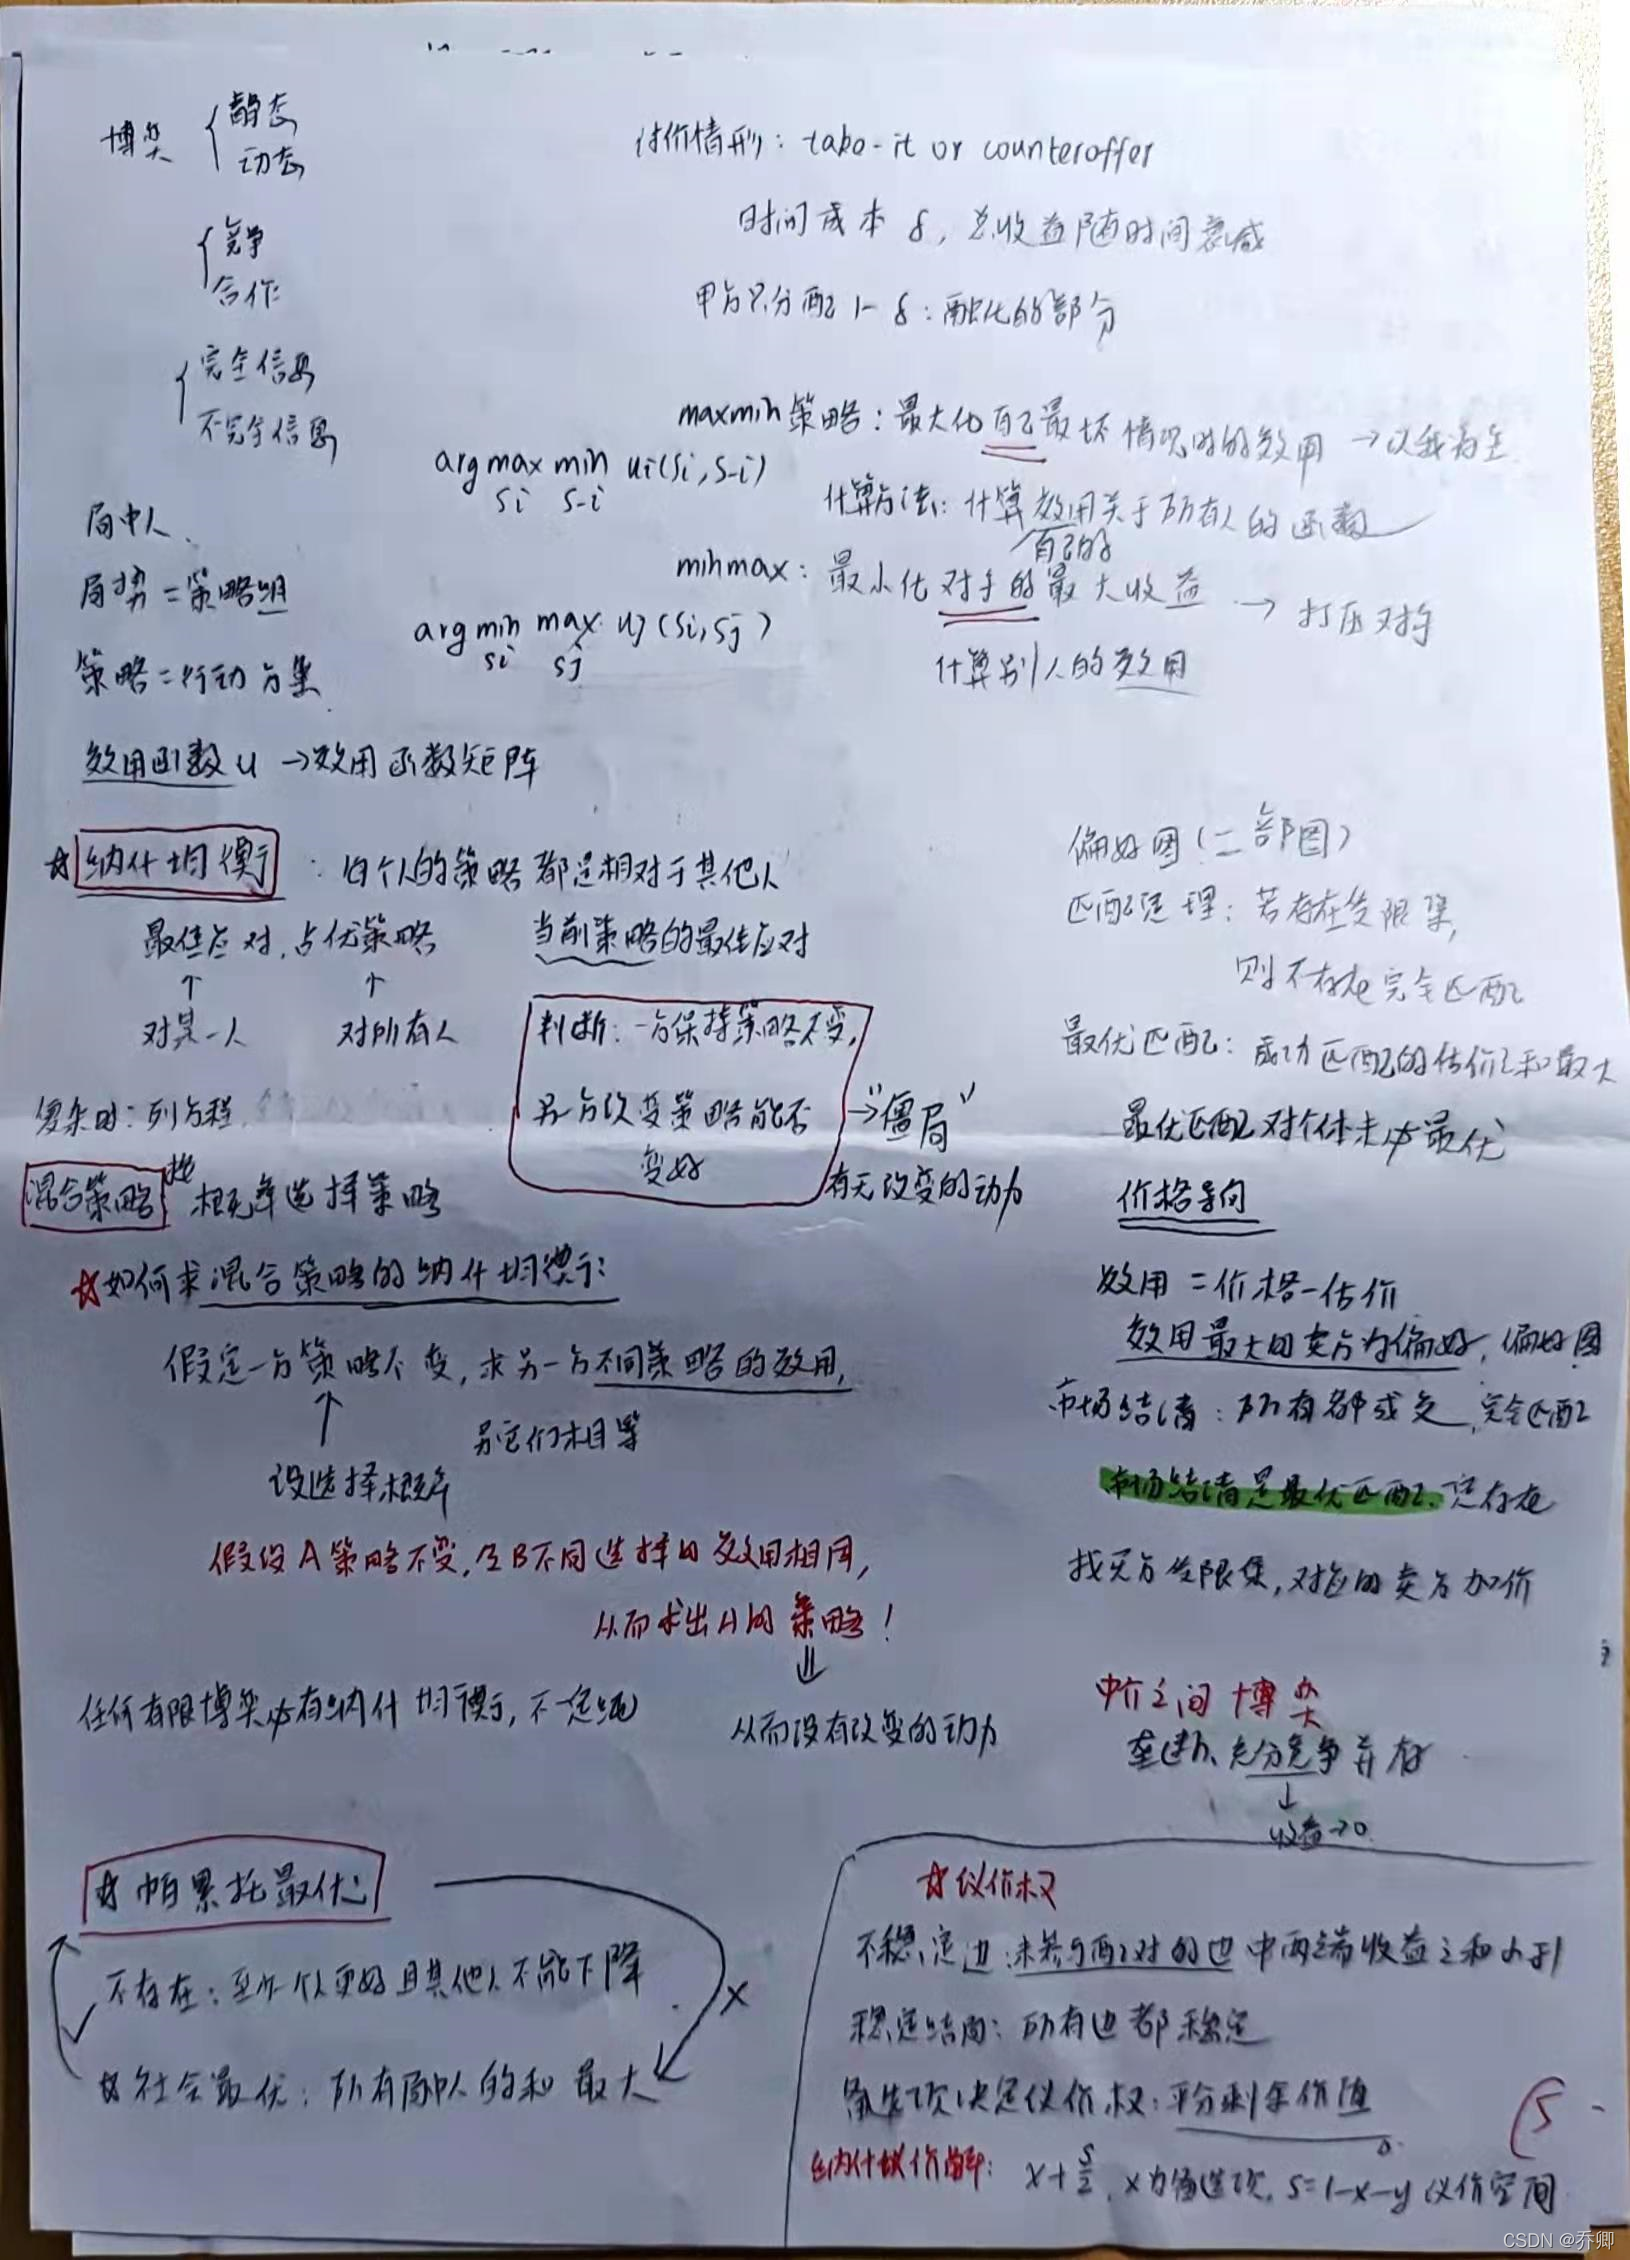 博类
静态
动态
竞争
合作
完全信息
不完全信息
局中人
局势=策略组
策略=行动方案
效用函数u →效用函数矩阵
讨价情形: take-it or counteroffer
时间成本 δ, 总收益随时间衰减
甲方只分配1-δ:融化的部分
maxmin策略:最大化自己最坏情况时的效用 →以我为主
arg max min ui(si,s-i)
si s-i
计算方法:计算效用关于所有人的函数
自己的
minmax:最小化对手的最大收益 → 打压对手
arg min max uj(si,sj)
si sj
计算别人的效用
☆纳什均衡:每个人的策略都是相对于其他人
当前策略的最佳应对
最佳应对,占优策略
↑ ↑
对某一人 对所有人
判断:一方保持策略不变,
另一方改变策略能否
变好
→"僵局"
有无改变的动力
复杂时:列方程
混合策略 按
概率选择策略
☆如何求混合策略的纳什均衡:
假定一方策略不变,求另一方不同策略的效用,
另它们相等
↑
设选择概率
假设A策略不变,令B不同选择的效用相同,
从而求出A的策略!
⇓
从而没有改变的动力
任何有限博类必有纳什均衡,不一定纯
偏好图(二部图)
匹配定理:若存在受限集,
则不存在完全匹配
最优匹配:成功匹配的估价之和最大
最优匹配对个体未必最优
价格导向
效用=价格-估价
效用最大的卖方为偏好,偏好图
市场结清:所有都成交,完全匹配
市场结清是最优匹配.定存在
找买方受限集,对应的卖方加价
中介之间博类
垄断、充分竞争并存
↓
收益→0
☆帕累托最优
不存在:至少一个人更好且其他人不能下降
☆社会最优:所有局中人的和最大
✓
×
☆议价权
不稳定边:未参与配对的边中两端收益之和小于1
稳定结局:所有边都稳定
备选项决定议价权:平分剩余价值
纳什议价解: x+s/2, x为备选项, s=1-x-y 议价空间
CSDN @乔卿